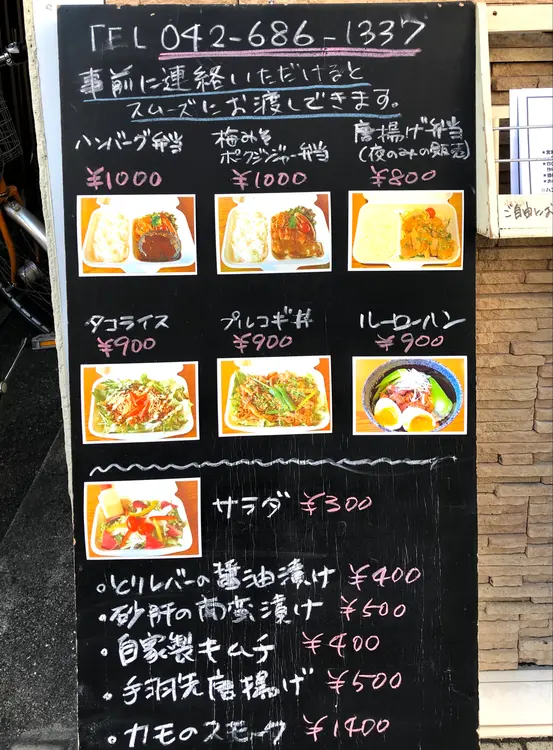 TEL 042-686-1337
事前に連絡いただけると
スムーズにお渡しできます。
ハンバーグ弁当
¥1000
梅みそ
ポークジンジャー弁当
¥1000
唐揚げ弁当
(夜のみの販売)
¥800
タコライス
¥900
プルコギ丼
¥900
ルーローハン
¥900
サラダ ¥300
・とりレバーの醤油漬け ¥400
・砂肝の南蛮漬け ¥500
・自家製キムチ ¥400
・手羽先唐揚げ ¥500
・カモのスモーク ¥1400
ご自由にお